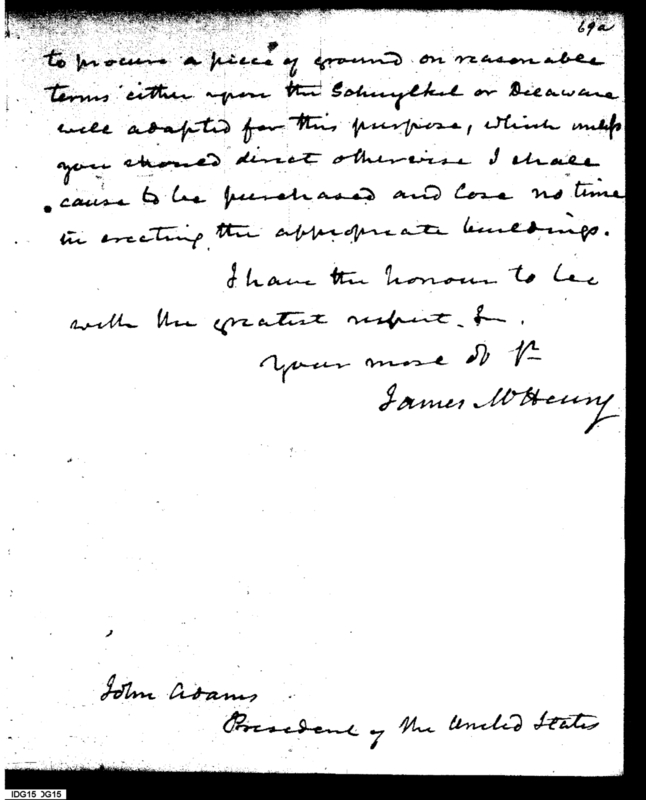 69a
to procure a piece of ground on reasonable
terms either upon the Schuylkel or Delaware
well adapted for this purpose, which unless
you should direct otherwise I shall
cause to be purchased and lose no time
in erecting the appropriate buildings.
I have the honour to be
with the greatest respect. &
Your most ob St
James McHenry
John Adams
President of the United States
IDG15 IDG15